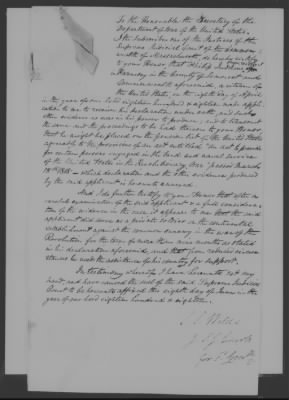 To the Honorable the Secretary of the
Department of War of the United States.
I the subscriber one of the Justices of the
Supreme Judicial Court of the Common-
wealth of Massachusetts, do hereby certify
to your Honor that Philip
in the County of and
Commonwealth aforesaid, a citizen of
the United States, on the eighth day of April
in the year of our Lord eighteen hundred & eighteen made appli-
cation to me to receive his declaration under oath, and such
other evidence as was in his power to produce, and to transmit
the same and the proceedings to be had thereon to your Honor
that he might be placed on the pension list of the United States
agreeably to the provisions of an act entitled "An act to provide
for certain persons engaged in the land and naval service
of the United States in the Revolutionary War" passed March
18th 1818 - which declaration and the other evidence produced
by the said applicant is hereunto annexed.
And I do further certify to your Honor that after a
careful examination of the said applicant & a full considera-
tion of the evidence in the case, it appears to me that the said
applicant did serve as a private soldier on the continental
establishment against the common enemy in the war of the
Revolution for the term of three months as stated
in his declaration aforesaid, and that from reduced circum-
stances he needs the assistance of his country for support.
In testimony whereof I have hereunto set my
hand, and have caused the seal of the said Supreme Judicial
Court to be hereunto affixed this eighth day of June in the
year of our Lord eighteen hundred & eighteen.
S. S. Wilde
J. S. J. Court